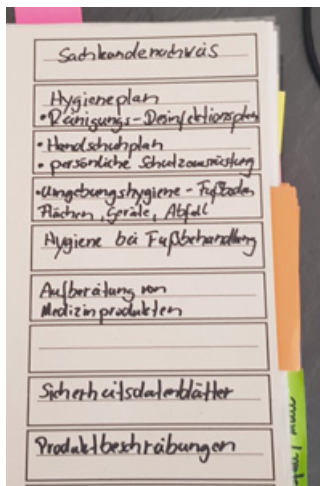 Sachkundenachweis
Hygieneplan
• Reinigungs-Desinfektionsplan
• Handschuhplan
• persönliche Schutzausrüstung
• Umgebungshygiene - Fußboden
Flächen, Geräte, Abfall
Hygiene bei Fußbehandlung
Aufbereitung von
Medizinprodukten
Sicherheitsdatenblätter
Produktbeschreibungen